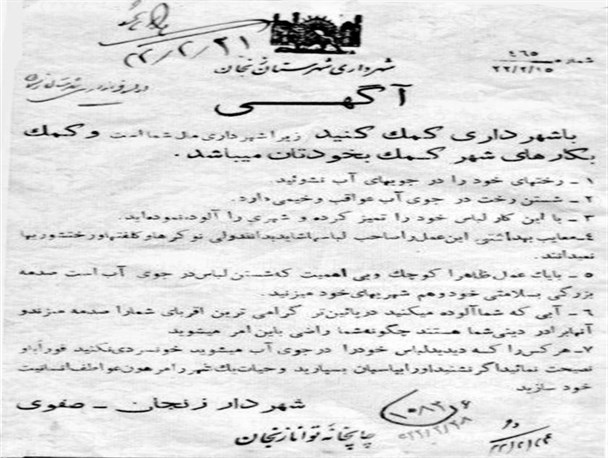 شهرداری شهرستان زنجان
شماره ۴۶۵
۲۲/۲/۱۵
۲۲/۲/۲۱
آگهی
باشهرداری کمك کنید زیرا شهرداری مال شما است و کمك
بکارهای شهر کمك بخودتان میباشد.
۱ـ رختهای خود را در جویهای آب نشوئید.
۲ـ شستن رخت در جوی آب عواقب وخیمی دارد.
۳ـ با این کار لباس خود را تمیز کرده و شهری را آلوده نموده‌اید.
۴ـ معایب بهداشتی این عمل را صاحب لباسها شاید بدانند ولی نوکرها و کلفتها و رختشوریها
نمیدانند.
۵ـ با یك عمل ظاهرا کوچك وبی اهمیت که شستن لباس در جوی آب است صدمه
بزرگی بسلامتی خود و هم شهریهای خود میزنید.
۶ـ آبی که شما آلوده میکنید در پائین‌تر گرامی ترین اقربای شما را صدمه میزند و
آنها برادر دینی شما هستند چگونه شما راضی باین امر میشوید
۷ـ هرکس را که دیدید لباس خود را در جوی آب میشوید خونسردی نکنید فوراً باو
نصیحت نمائید اگر نشنید اورا بپاسبان بسپارید و حیات یك شهر را مرهون عواطف انسانیت
خود سازید
شهردار زنجان ـ صفوی
چاپخانه توانا زنجان